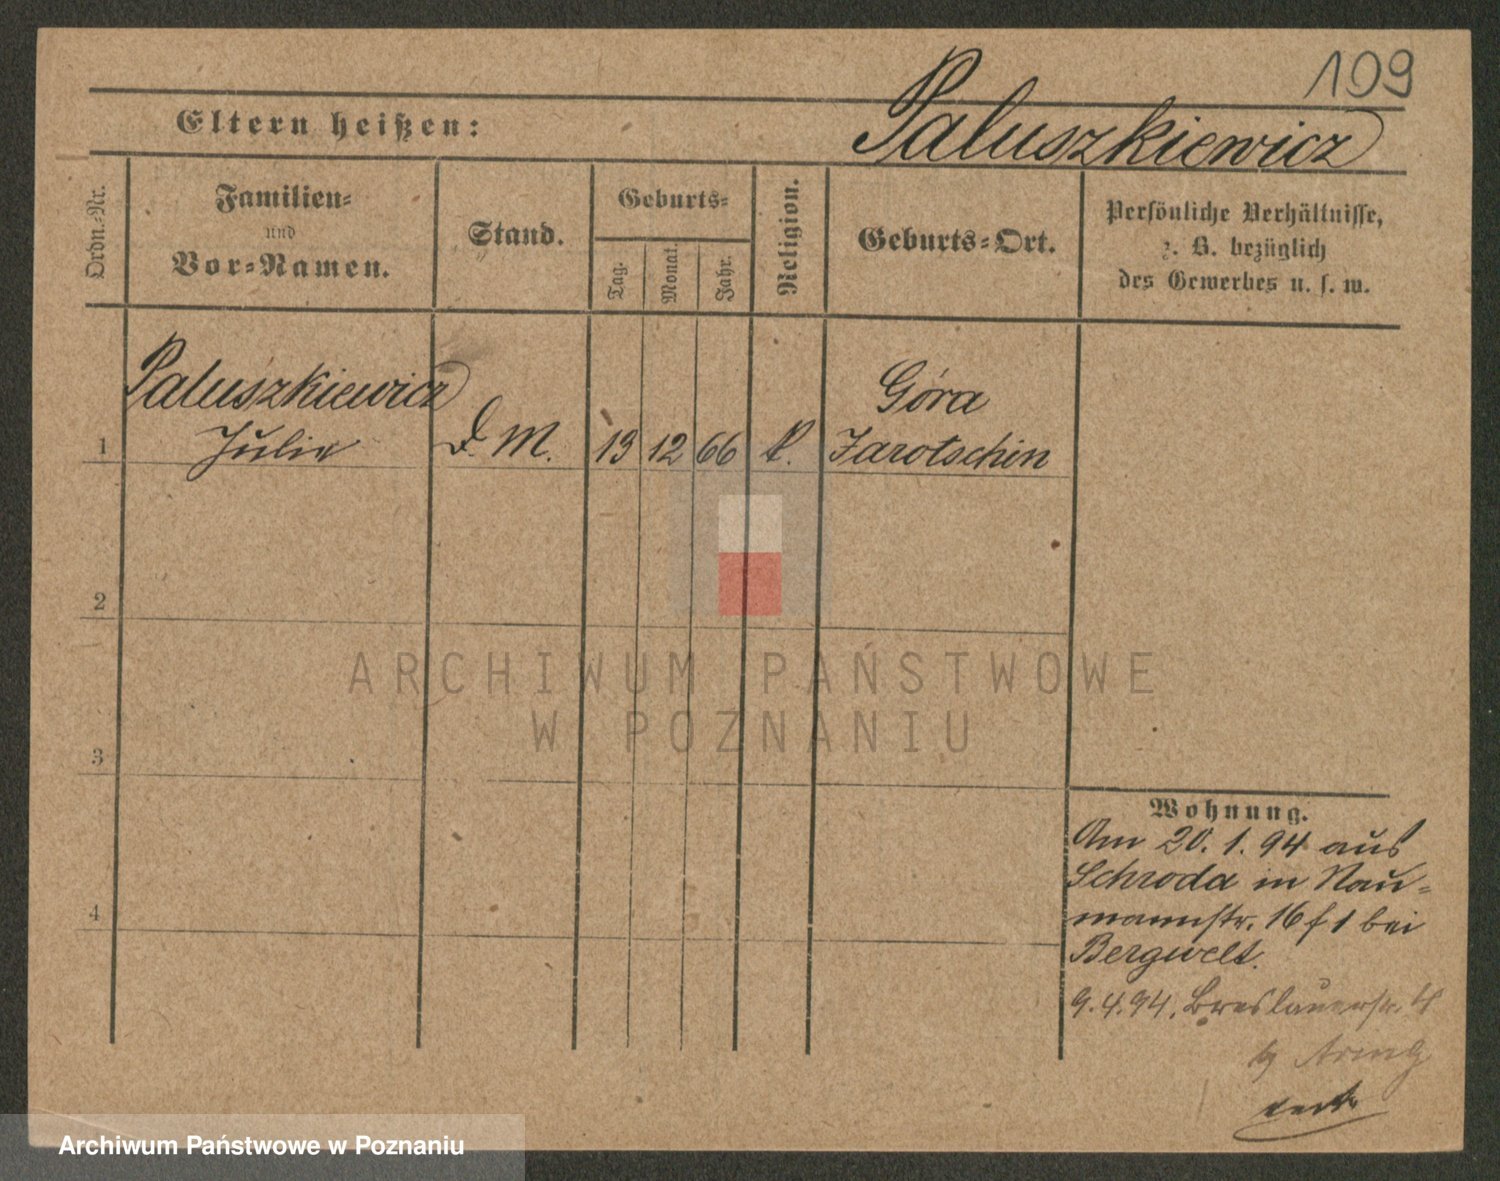 109
Eltern heißen:
Paluszkiewicz
Ordn.-Nr.
Familien-
und
Vor-Namen.
Stand.
Geburts-
Tag.
Monat.
Jahr.
Religion.
Geburts-Ort.
Persönliche Verhältnisse,
z. B. bezüglich
des Gewerbes u. s. w.
Paluszkiewicz Góra
1 Julie d. M. 13 12 66 k. Jarotschin
2
ARCHIWUM PAŃSTWOWE
W POZNANIU
3
Wohnung.
Am 20. 1. 94 aus
Schroda in Nau-
mannstr. 16 f 1 bei
Bergwelt.
4
9.4.94. Breslauerstr. 4
Archiwum Państwowe w Poznaniu